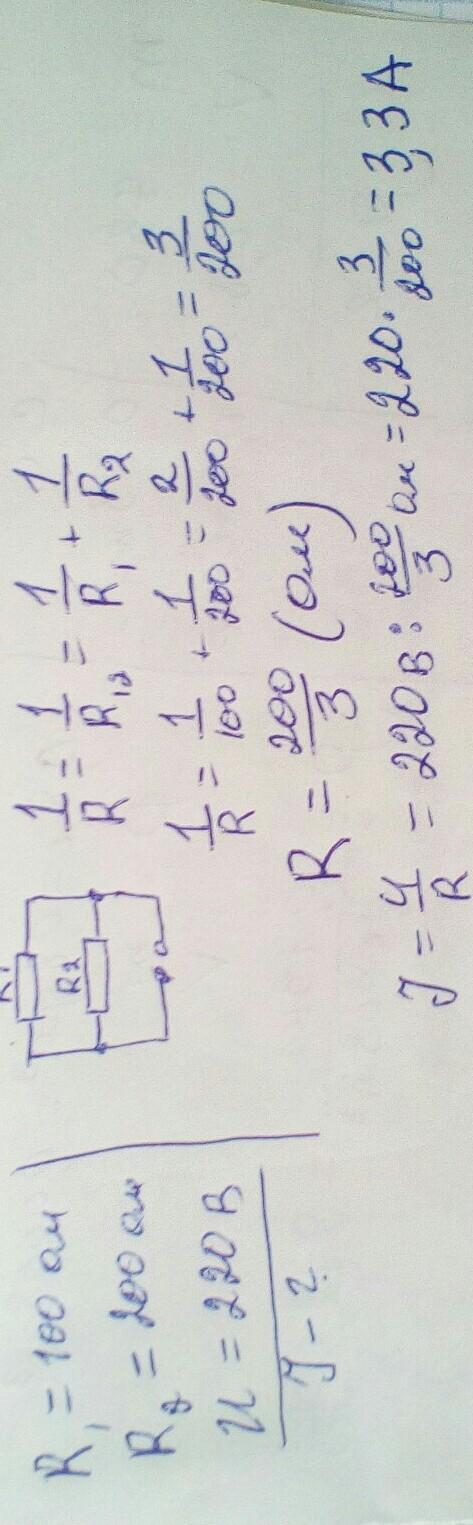 R₁ = 100 ом
R₂ = 200 ом
U = 220 В
J - ?
R₁
R₂
1/R = 1/R₁₂ = 1/R₁ + 1/R₂
1/R = 1/100 + 1/200 = 2/200 + 1/200 = 3/200
R = 200/3 (ом)
J = U/R = 220 В : 200/3 ом = 220 · 3/200 = 3,3 А